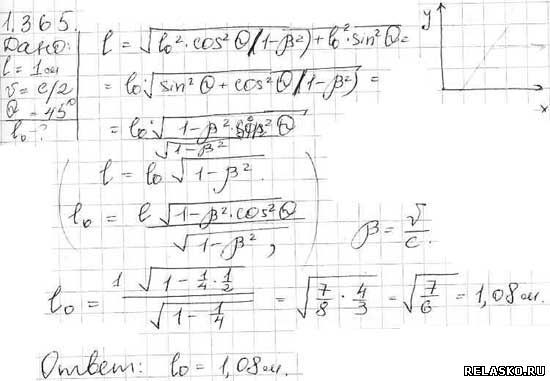 1.365.
Дано:
l = 1 м
v = c/2
θ = 45°
l₀ - ?
l = √(l₀²·cos²θ(1-β²) + l₀²·sin²θ) =
= l₀·√(sin²θ + cos²θ(1-β²)) =
= l₀·√(1-β²· ²θ)
√(1-β²)
l = l₀√(1-β²).
l₀ = l√(1-β²·cos²θ) / √(1-β²),
β = v/c.
l₀ = 1√(1-1/4·1/2) / √(1-1/4) = √(7/8·4/3) = √(7/6) = 1,08 м.
Ответ: l₀ = 1,08 м.
y
x
RELASKO.RU